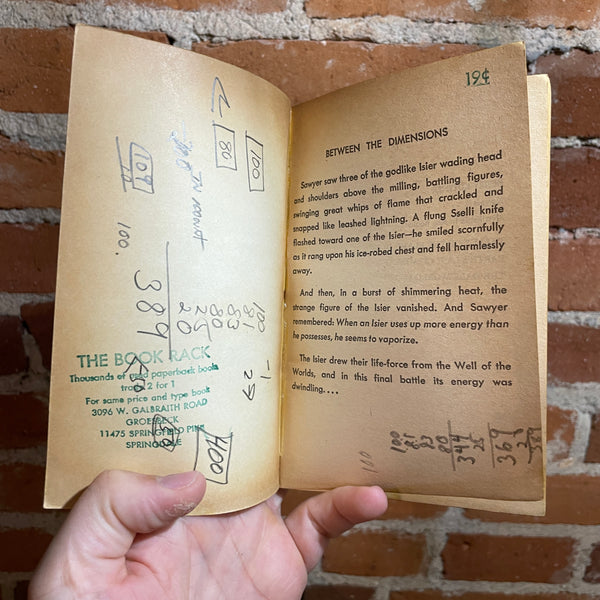 100
80
104
100.
IN
389
100
81
83
80
25
20
-1
29
400
THE BOOK RACK
Thousands of used paperback books
trade 2 for 1
For same price and type book
3096 W. GALBRAITH ROAD
GROESBECK
11475 SPRINGFIELD PIKE
SPRINGDALE
19¢
BETWEEN THE DIMENSIONS
Sawyer saw three of the godlike Isier wading head
and shoulders above the milling, battling figures,
swinging great whips of flame that crackled and
snapped like leashed lightning. A flung Sselli knife
flashed toward one of the Isier—he smiled scornfully
as it rang upon his ice-robed chest and fell harmlessly
away.
And then, in a burst of shimmering heat, the
strange figure of the Isier vanished. And Sawyer
remembered: When an Isier uses up more energy than
he possesses, he seems to vaporize.
The Isier drew their life-force from the Well of the
Worlds, and in this final battle its energy was
dwindling....
100
100
80
344
25
369
389